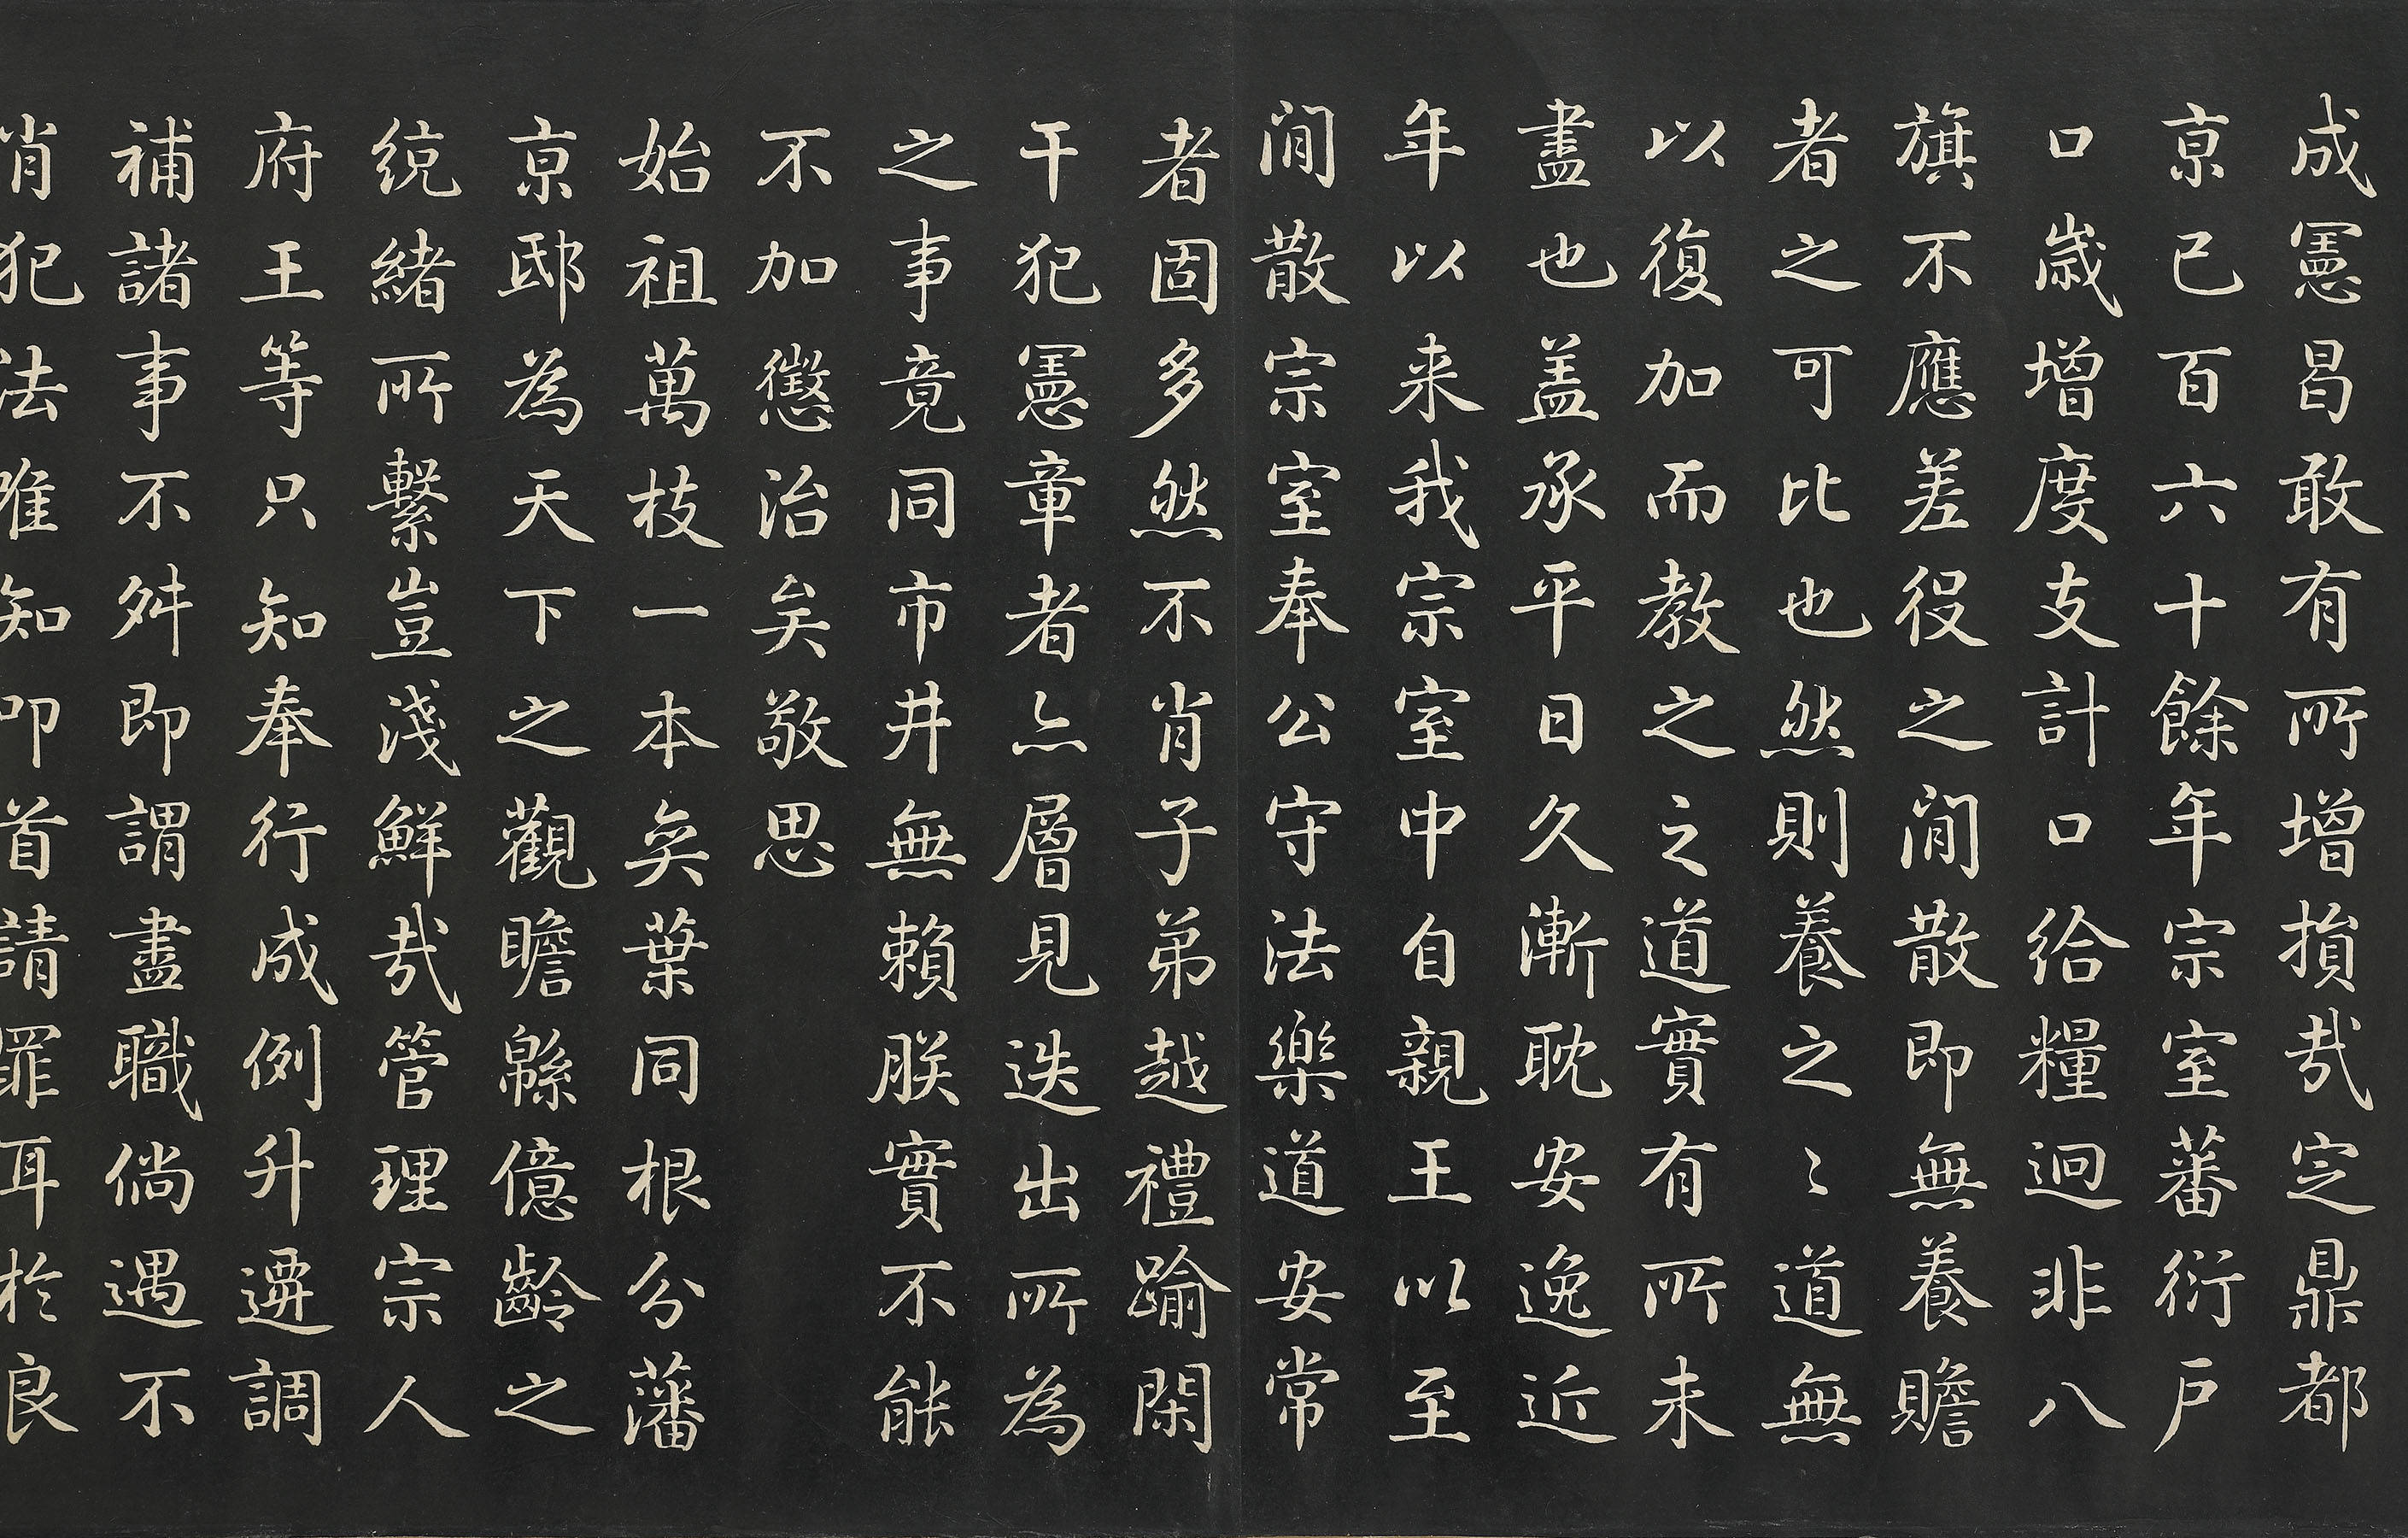 成憲曷敢有所增損㢤定鼎都
京已百六十餘年宗室蕃衍戶
口歲增度支計口給糧迥非八
旗不應差役之閒散即無養贍
者之可比也然則養之〻道無
以復加而教之之道實有所未
盡也盖承平日久漸耽安逸近
年以来我宗室中自親王以至
閒散宗室奉公守法樂道安常
者固多然不肖子弟越禮踰閑
干犯憲章者亦層見迭出所為
之事竟同市井無賴朕實不能
不加懲治矣敬思
始祖萬枝一本奕葉同根分藩
京邸為天下之觀瞻緜億齡之
統緒所繫豈淺鮮㢤管理宗人
府王等只知奉行成例升遷調
補諸事不舛即謂盡職倘遇不
肖犯法唯知叩首請罪耳於良